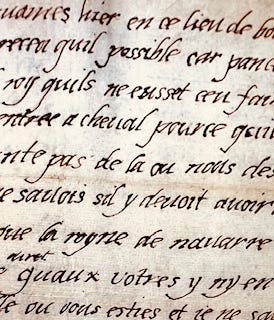 hier en ce lieu de bo
quil possible car
roy quils ne eusset ceu fai
entree a cheval pource quil
nte pas de la ou nous des
e savois sil y devoit avoir
que la royne de navarre
avret
quaux votres y ny en
lle ou vous esties et ie ne sa